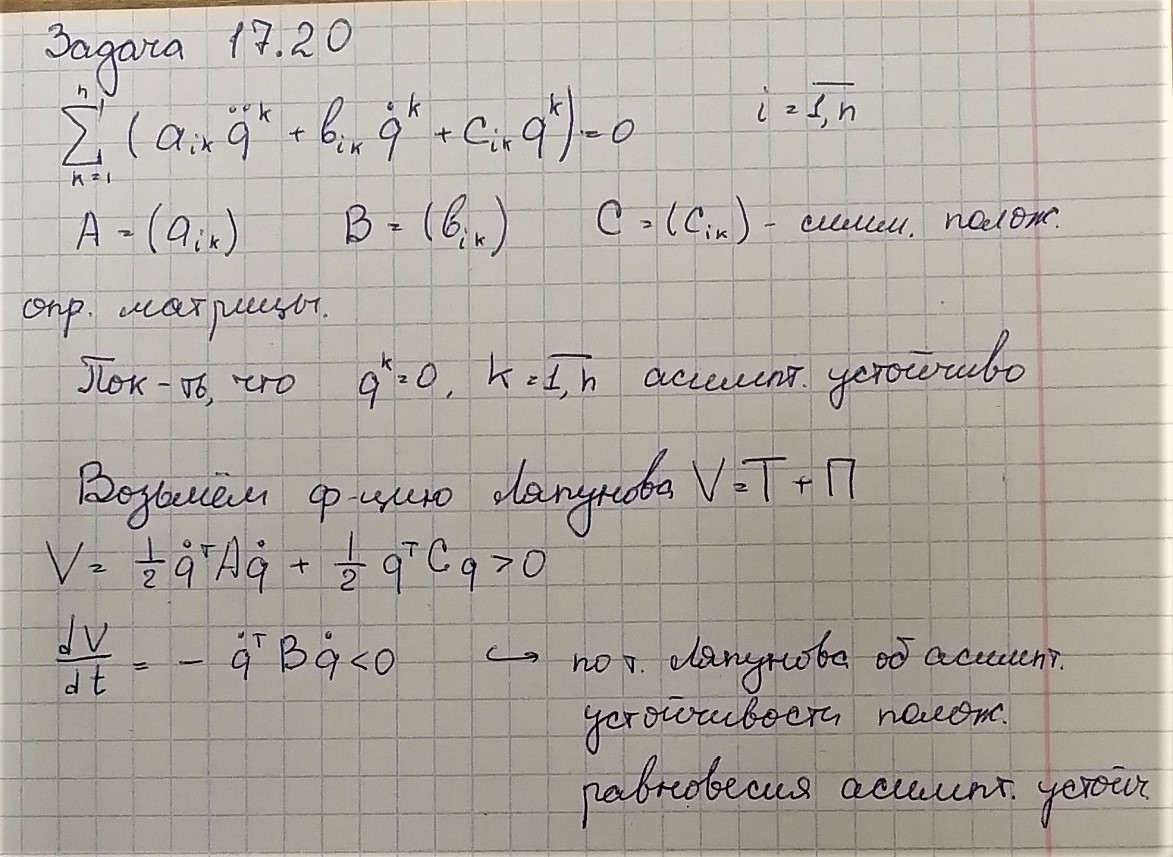 Задача 17.20
∑ₖ₌₁ⁿ (aᵢₖ q̈ᵏ + bᵢₖ q̇ᵏ + cᵢₖ qᵏ) = 0 i = 1,n̅
A = (aᵢₖ) B = (bᵢₖ) C = (cᵢₖ) - симм. полож.
опр. матрицы.
Пок-ть, что qᵏ = 0, k = 1,n̅ асимпт. устойчиво
Возьмём ф-цию Ляпунова V = T + П
V = 1/2 q̇ᵀAq̇ + 1/2 qᵀCq > 0
dV/dt = - q̇ᵀBq̇ < 0 ↪ по т. Ляпунова об асимпт.
устойчивости полож.
равновесия асимпт. устойч.